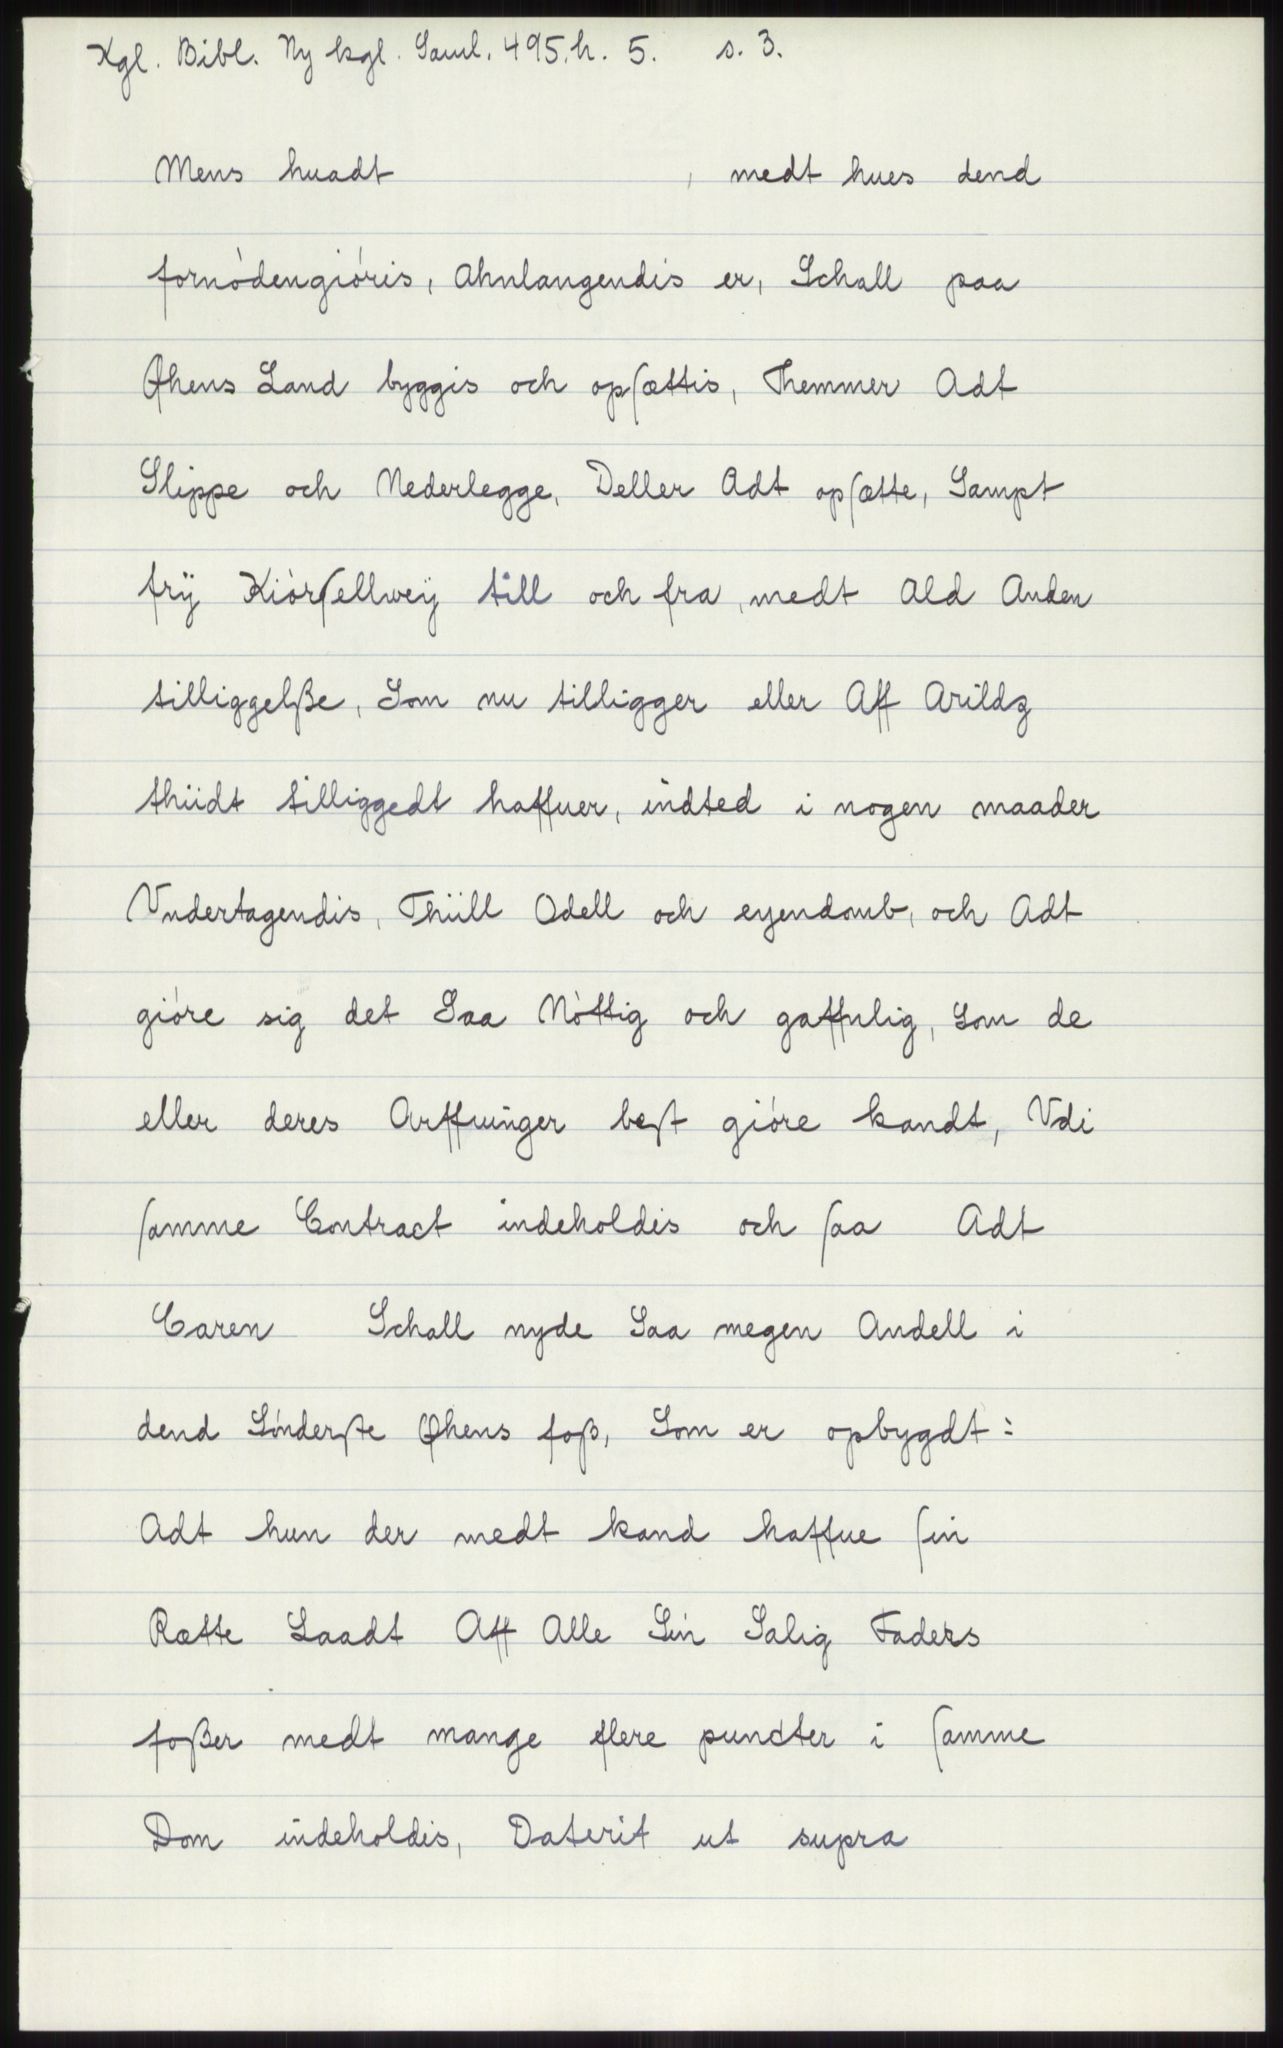 Kgl. Bibl. Ny kgl. Saml. 495.h. 5. s. 3.
Mens huadt , medt hues dend
fornódengióris, Ahnlangendis er, Schall paa
Øhens Land byggis och opſættis, Themmer Adt
Slippe och Nederlegge, Deller Adt opſætte, Sampt
frÿ Kiórſellweÿ till och fra, medt Ald Anden
tilliggelße, Som nu tilligger eller Aff Arildz
thiidt tilliggedt haffuer, indted i nogen maader
Vndertagendis, Thiill Odell och eyendomb, och Adt
gióre sig det Saa Nóttig och gaffnlig, Som de
eller deres Arffuinger beſt gióre kandt, Vdi
ſamme Contract indeholdis och ſaa Adt
Caren Schall nyde Saa megen Andell i
dend Sónderſte Øhens foß, Som er opbygdt:
Adt hun der medt kand haffue ſin
Rætte Laadt Aff Alle Sin Salig Faders
foßer medt mange flere puncter i ſamme
Dom indeholdis, Daterit ut supra